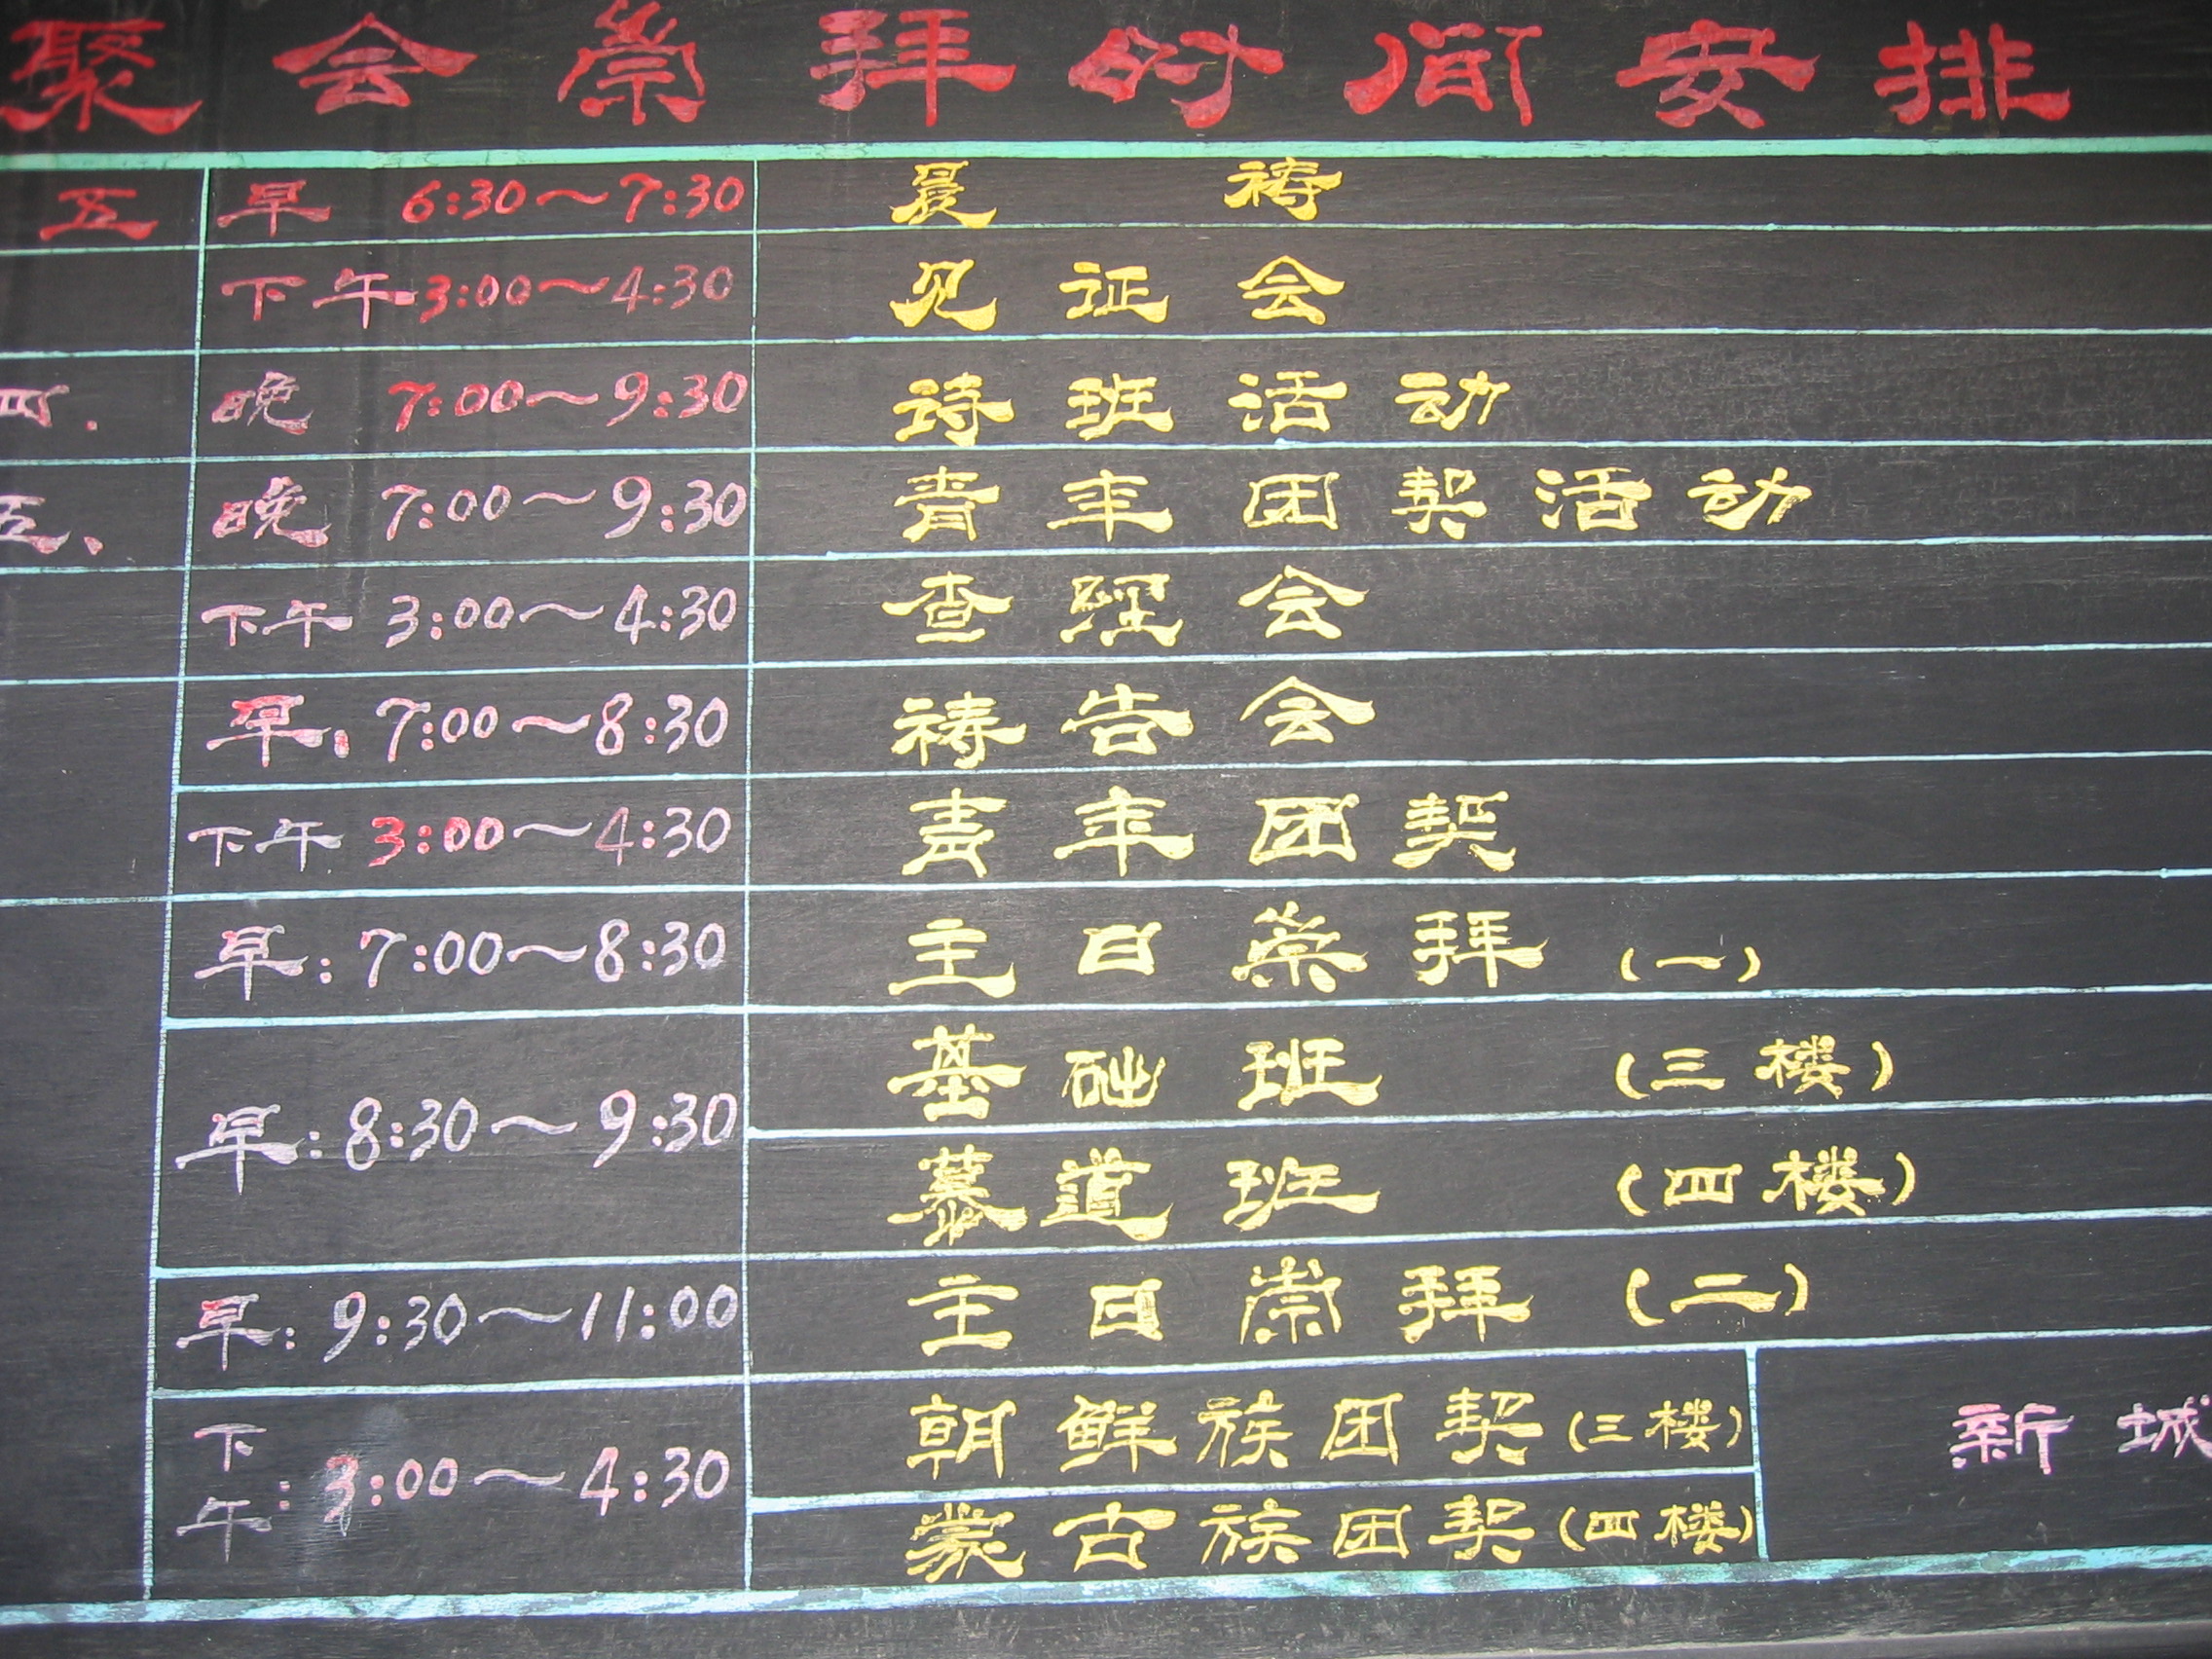 聚会崇拜时间安排
五 早 6:30～7:30 晨祷
下午 3:00～4:30 见证会
四. 晚 7:00～9:30 诗班活动
五、 晚 7:00～9:30 青年团契活动
下午 3:00～4:30 查经会
早: 7:00～8:30 祷告会
下午 3:00～4:30 青年团契
早: 7:00～8:30 主日崇拜 (一)
早: 8:30～9:30 基础班 (三楼)
慕道班 (四楼)
早: 9:30～11:00 主日崇拜 (二)
下午: 3:00～4:30 朝鲜族团契 (三楼) 新城
蒙古族团契 (四楼)